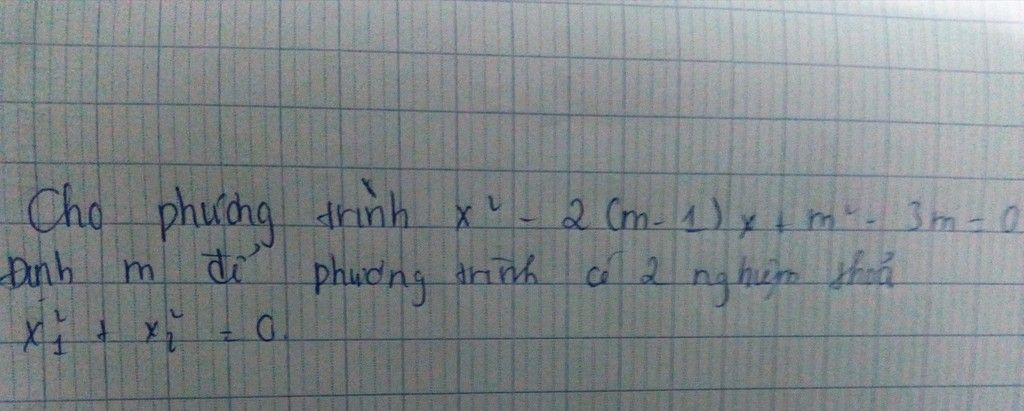 Cho phương trình x² - 2(m-1)x + m² - 3m = 0
Định m để phương trình có 2 nghiệm thoả
x₁² + x₂² = 0.